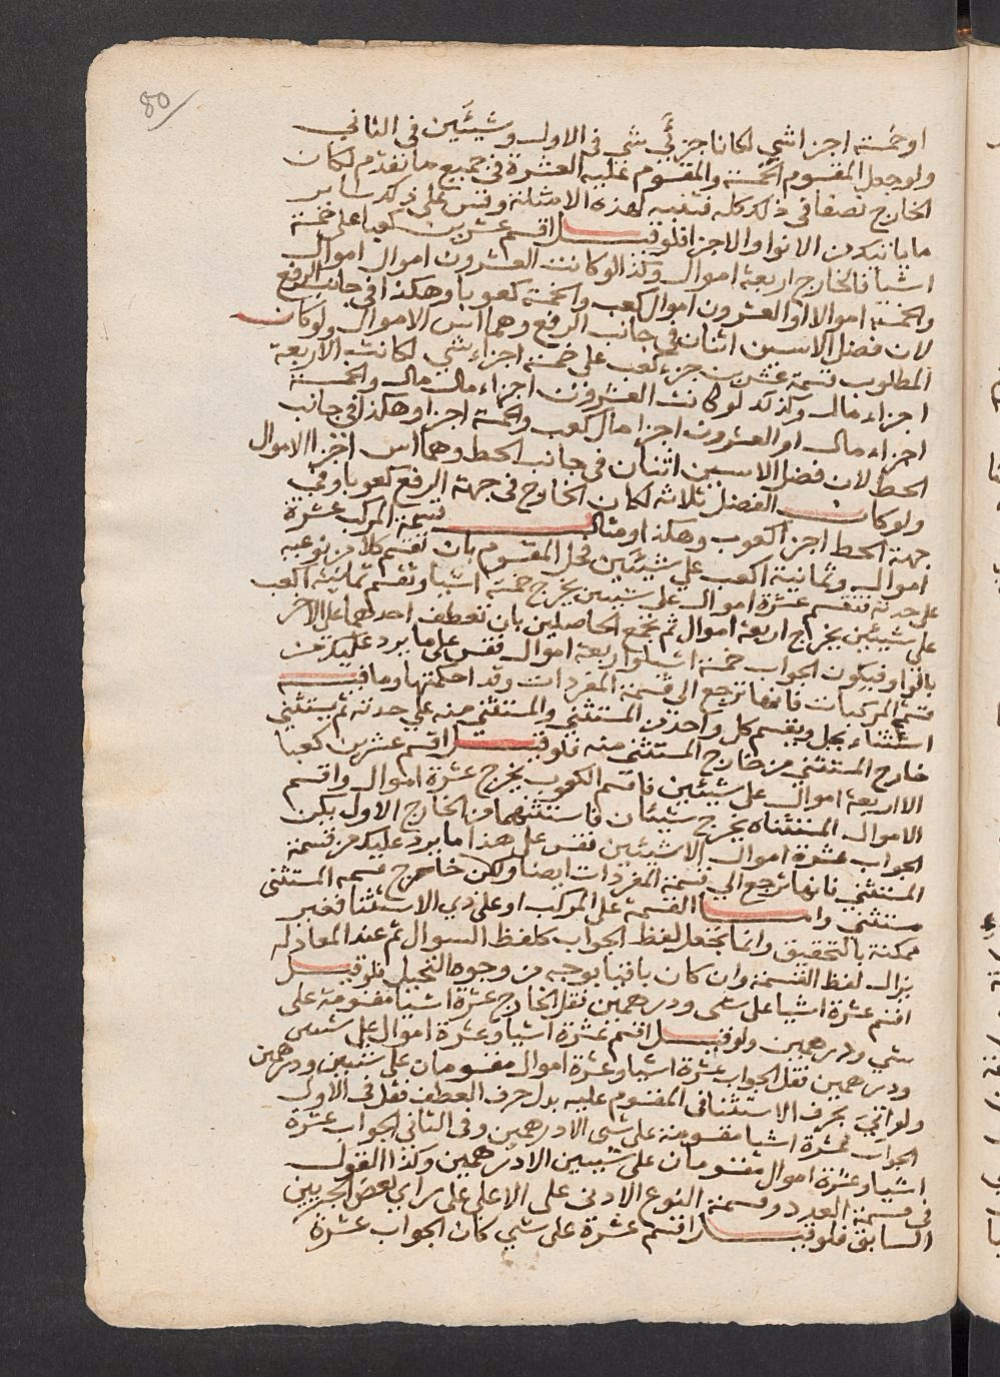 80
او خمسة اجزا شي لكانا جزئي شي في الاول وشيئين في الثاني
ولو جعل المقسوم الخمسة والمقسوم عليه العشرة في جميع ما تقدم لكان
الخارج نصفا في ذلك كله فتنبه لهذه الامثلة وقس على ذلك ساير
ما ياتيك من الانواع والاجزا فلو قيل اقسم عشرين كعبا على خمسة
اشيا فالخارج اربعة اموال وكذا لو كانت العشرون اموال اموال
والخمسة اموالا او العشرون اموال كعب والخمسة كعوبا وهكذا في جانب الرفع
لان فضل الاسين اثنان في جانب الرفع وهما اس الاموال ولو كان
المطلوب قسمة عشرين جزء كعب على خمسة اجزاء شي لكانت الاربعة
اجزاء مال وكذلك لو كانت العشرون اجزاء مال مال والخمسة
اجزاء مال او العشرون اجزا مال كعب والخمسة اجزا وهكذا في جانب
الحط لان فضل الاسين اثنان في جانب الحط وهما اس اجزا الاموال
ولو كان الفضل ثلاثة لكان الخارج في جهة الرفع كعوبا وفي
جهة الحط اجزا كعوب وهكذا ومثال قسمة المركب عشرة
اموال وثمانية اكعب على شيئين فحل المقسوم بان تقسم كلا من نوعيه
على حدته فتقسم عشرة اموال على شيئين يخرج خمسة اشيا وتقسم ثمانية اكعب
على شيئين يخرج اربعة اموال ثم تجمع الحاصلين بان تعطف احدهما على الاخر
بالواو فيكون الجواب خمسة اشيا واربعة اموال فقس على ما يرد عليك من
قسم المركبات فانها ترجع الى قسمة المفردات وقد احكمتها وما فيه
استثناء يحل ويقسم كل واحد من المستثني والمستثني منه على حدته ثم يستثني
خارج المستثني من خارج المستثني منه فلو قيل اقسم عشرين كعبا
الا اربعة اموال على شيئين فاقسم الكعوب يخرج عشرة اموال واقسم
الاموال المستثناه يخرج شيئان فاستثنهما من الخارج الاول يكن
الجواب عشرة اموال الا شيئين فقس على هذا ما يرد عليك من قسمة
المستثني فانها ترجع الى قسمة المفردات ايضا ولكن خارج قسمة المستثنى
مستثنى واما القسمة على المركب او على ذي الاستثنا فغير
ممكنة بالتحقيق وانما تجعل لفظ الجواب كلفظ السوال ثم عند المعادله
يزال لفظ القسمة وان كان باقيا بوجه من وجوه التحيل فلو قيل
اقسم عشرة اشيا على شي ودرهمين فقل الخارج عشرة اشيا مقسومة على
شي ودرهمين ولو قيل اقسم عشرة اشيا وعشرة اموال على شيين
ودرهمين فقل الجواب عشرة اشيا وعشرة اموال مقسومان على شيين ودرهمين
ولو اتي بحرف الاستثنا في المقسوم عليه بدل حرف العطف فقل في الاول
الجواب عشرة اشيا مقسومة على شي الا درهمين وفي الثاني الجواب عشرة
اشيا وعشرة اموال مقسومان على شيين الا درهمين وكذا القول
في قسمة العدد وقسمة النوع الادنى على الاعلى على راي بعض الجبريين
السابق فلو قيل اقسم عشرة على شي كان الجواب عشرة